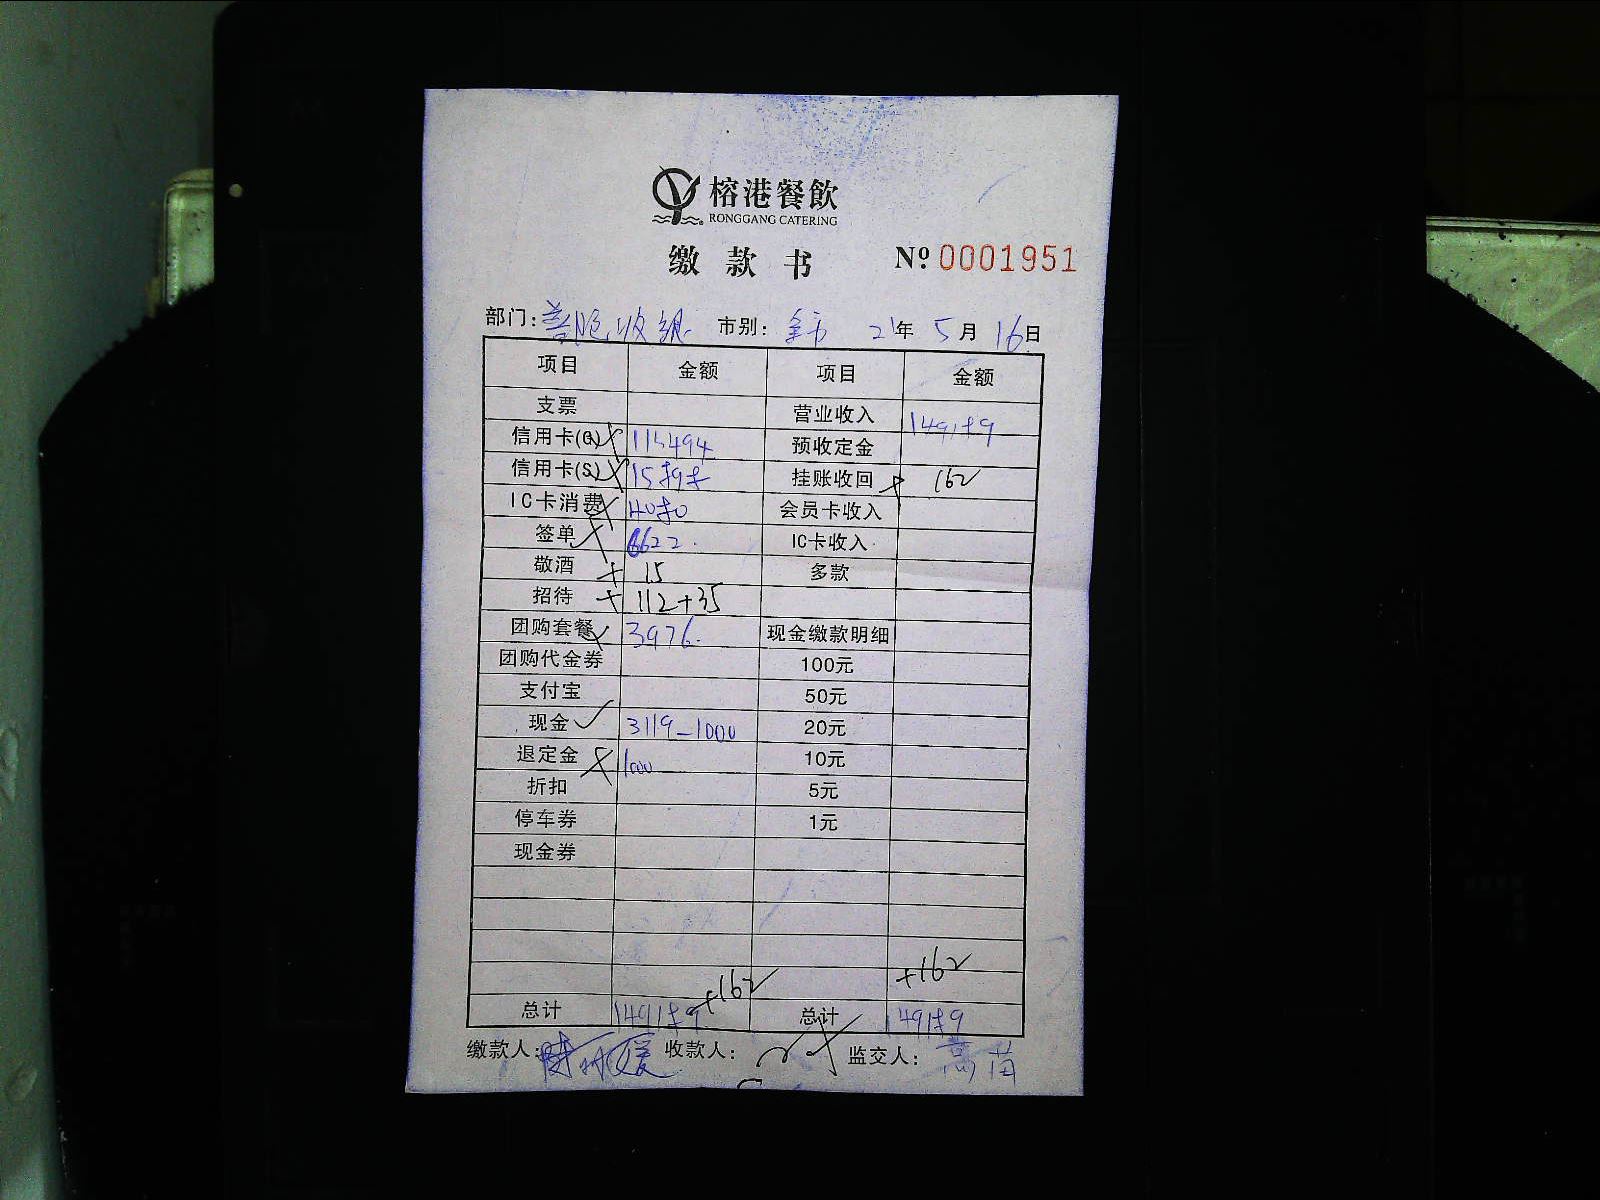 榕港餐飲
RONGGANG CATERING
缴款书 № 0001951
部门: 市别: 21年 5月 16日
项目 金额 项目 金额
支票 营业收入 149189
信用卡(G) 115494 预收定金
信用卡(S) 15898 挂账收回 162
IC卡消费 4080 会员卡收入
签单 6622. IC卡收入
敬酒 15 多款
招待 112+35
团购套餐 3976. 现金缴款明细
团购代金券 100元
支付宝 50元
现金 3119-1000 20元
退定金 1000 10元
折扣 5元
停车券 1元
现金券
+162 +162
总计 149189 总计 149189
缴款人: 收款人: 监交人: